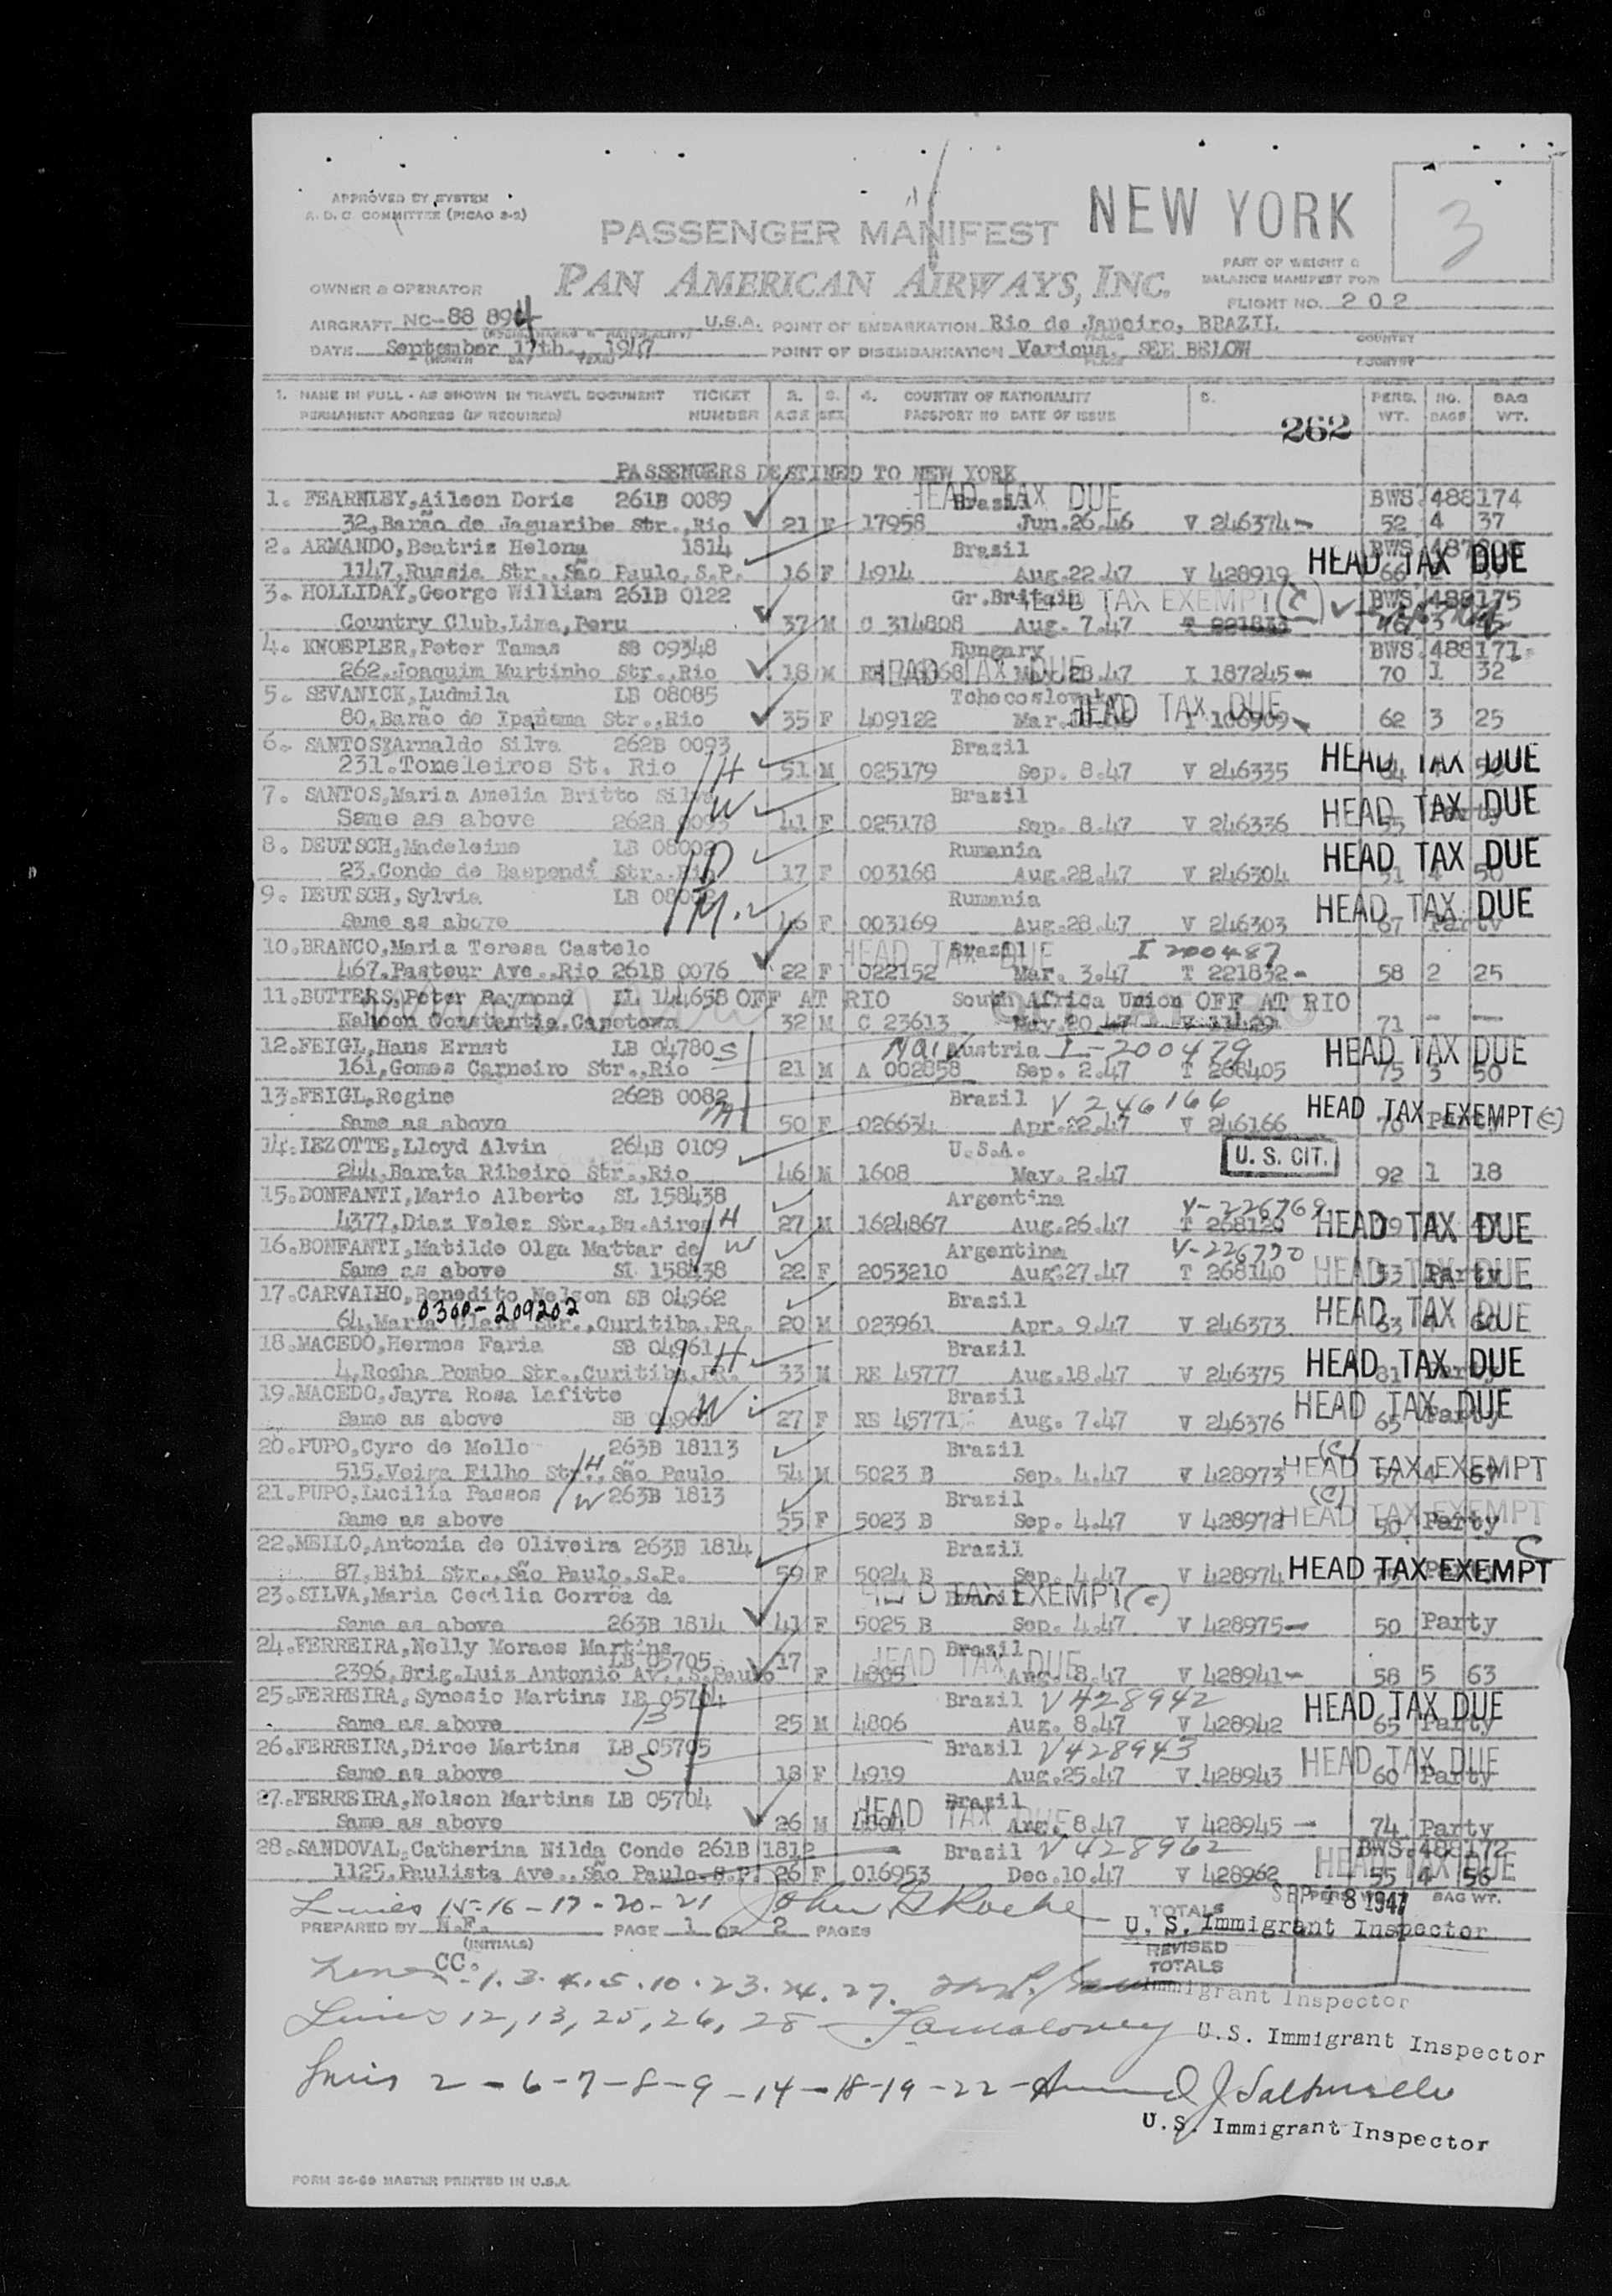 APPROVED BY SYSTEM
A. D. C. COMMITTEE (PICAO 3-2)
PASSENGER MANIFEST
NEW YORK
3
PAN AMERICAN AIRWAYS, INC.
PART OF WEIGHT &
BALANCE MANIFEST FOR
OWNER & OPERATOR
FLIGHT NO. 202
AIRCRAFT NC-88 894 U.S.A. POINT OF EMBARKATION Rio de Janeiro, BRAZIL
COUNTRY
DATE September 17th. 1947 POINT OF DISEMBARKATION Various. SEE BELOW
COUNTRY
1. NAME IN FULL - AS SHOWN IN TRAVEL DOCUMENT TICKET 2. 3. 4. COUNTRY OF NATIONALITY 5. PERS. NO. BAG
PERMANENT ADDRESS (IF REQUIRED) NUMBER AGE SEX PASSPORT NO DATE OF ISSUE WT. BAGS WT.
262
PASSENGERS DESTINED TO NEW YORK
HEAD TAX DUE
1. FEARNLEY,Aileen Doris 261B 0089 Brazil BWS 488174
32,Barão de Jaguaribe Str.,Rio 21 F 17958 Jun.26.46 V 246374- 52 4 37
2. ARMANDO,Beatriz Helena 1814 Brazil BWS HEAD TAX DUE
1147,Russia Str.,São Paulo,S.P. 16 F 4914 Aug.22.47 V 428919 66
3. HOLLIDAY,George William 261B 0122 Gr.Britain HEAD TAX EXEMPT (C) BWS 488175
Country Club,Lima,Peru 37 M C 314808 Aug. 7.47
4. KNOEPLER,Peter Tamas SB 09348 Hungary BWS.488171
262.Joaquim Murtinho Str.,Rio 18 M HEAD TAX DUE 28.47 I 187245- 70 1 32
5. SEVANICK,Ludmila LB 08085 Tchecoslovakia HEAD TAX DUE
80,Barão de Ipanema Str.,Rio 35 F 409122 Mar. I 100909 62 3 25
6. SANTOS,Arnaldo Silva 262B 0093 Brazil HEAD TAX DUE
231.Toneleiros St. Rio H 51 M 025179 Sep. 8.47 V 246335
7. SANTOS,Maria Amelia Britto Silva W Brazil HEAD TAX DUE
Same as above 262B 0093 41 F 025178 Sep. 8.47 V 246336 55
8. DEUTSCH,Madeleine LB 08002 Rumania HEAD TAX DUE
23.Conde de Baependí Str.,Rio D 17 F 003168 Aug.28.47 V 246304 51 4 50
9. DEUTSCH, Sylvia LB 08002 Rumania HEAD TAX DUE
Same as above M. 46 F 003169 Aug.28.47 V 246303 67 Party
10.BRANCO,Maria Teresa Castelo HEAD TAX DUE Brazil I 200487
467.Pasteur Ave.,Rio 261B 0076 22 F 022152 Mar. 3.47 T 221832- 58 2 25
11.BUTTERS,Peter Raymond LL 144658 OFF AT RIO South Africa Union OFF AT RIO
Constantia,Capetown 32 M C 23613 May.20.47 V 11429 71 - -
12.FEIGL,Hans Ernst LB 04780 S Austria I-200479 HEAD TAX DUE
161,Gomes Carneiro Str.,Rio 21 M A 002858 Sep. 2.47 T 268405 75 3 50
13.FEIGL,Regine 262B 0082 M Brazil V 246166 HEAD TAX EXEMPT (C)
Same as above 50 F 026634 Apr.22.47 V 246166
14.LEZOTTE,Lloyd Alvin 264B 0109 U.S.A. U. S. CIT.
244.Barata Ribeiro Str.,Rio 46 M 1608 May. 2.47 92 1 18
15.BONFANTI,Mario Alberto SL 158438 Argentina V-226769
4377,Diaz Velez Str.,Bs.Aires H 27 M 1624867 Aug.26.47 T 268120 HEAD TAX DUE
16.BONFANTI,Matilde Olga Mattar de W Argentina V-226770
Same as above SL 158438 22 F 2053210 Aug.27.47 T 268140 HEAD TAX DUE 53 Party
17.CARVALHO,Benedito Nelson SB 04962 Brazil HEAD TAX DUE
0300-209202
64,Maria Str.,Curitiba.PR. 20 M 023961 Apr. 9.47 V 246373 63
18.MACEDO,Hermes Faria SB 04961 H Brazil HEAD TAX DUE
4,Rocha Pombo Str.,Curitiba.PR. 33 M RE 45777 Aug.18.47 V 246375 81
19.MACEDO,Jayra Rosa Lafitte W Brazil HEAD TAX DUE
Same as above SB 04961 27 F RE 45771 Aug. 7.47 V 246376 65 Party
20.PUPO,Cyro de Mello 263B 18113 Brazil (C)
515.Veiga Filho Str., São Paulo H 54 M 5023 B Sep. 4.47 V 428973 HEAD TAX EXEMPT
21.PUPO,Lucilia Passos W 263B 1813 Brazil (C)
Same as above 55 F 5023 B Sep. 4.47 V 428972 HEAD TAX EXEMPT 50 Party
22.MELLO,Antonia de Oliveira 263B 1814 Brazil C
87,Bibi Str.,São Paulo.S.P. 59 F 5024 B Sep. 4.47 V 428974 HEAD TAX EXEMPT
23.SILVA,Maria Cecilia Corrêa da HEAD TAX EXEMPT (C)
Same as above 263B 1814 41 F 5025 B Sep. 4.47 V 428975- 50 Party
24.FERREIRA,Nelly Moraes Martins HEAD TAX DUE Brazil
LB 05705
2396,Brig.Luis Antonio Av.,S.Paulo 17 F 4805 Aug. 8.47 V 428941- 58 5 63
25.FERREIRA,Synesio Martins LB 05704 Brazil V 428942 HEAD TAX DUE
Same as above B 25 M 4806 Aug. 8.47 V 428942 65 Party
26.FERREIRA,Dirce Martins LB 05705 Brazil V 428943 HEAD TAX DUE
Same as above S 18 F 4919 Aug.25.47 V 428943 60 Party
27.FERREIRA,Nelson Martins LB 05704 HEAD TAX DUE Brazil
Same as above 26 M 4804 Aug. 8.47 V 428945 - 74 Party
28.SANDOVAL,Catherina Nilda Conde 261B 1812 Brazil V 428962 BWS.488172
1125.Paulista Ave.,São Paulo.S.P. 26 F 016953 Dec.10.47 V 428962 HEAD TAX DUE 55 4 56
Lines 15-16-17-20-21 John G Roche SEP 18 1947 PERS. WT. BAG WT.
PREPARED BY N.F. PAGE 1 OF 2 PAGES TOTALS
(INITIALS) U. S. Immigrant Inspector
REVISED
TOTALS
CC.
Lines 1.3.4.5.10.23.24.27. Immigrant Inspector
Lines 12, 13, 25, 26, 28 U.S. Immigrant Inspector
Lines 2-6-7-8-9-14-18-19-22-
U.S. Immigrant Inspector
FORM 36-69 MASTER PRINTED IN U.S.A.